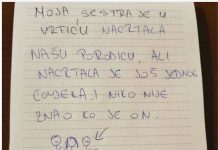 MOJA SESTRA JE U
VRTIĆU NACRTALA
NAŠU PORODICU, ALI
NACRTALA JE JOŠ JEDNOG
ČOVJEKA, I NIKO NIJE
ZNAO KO JE ON.